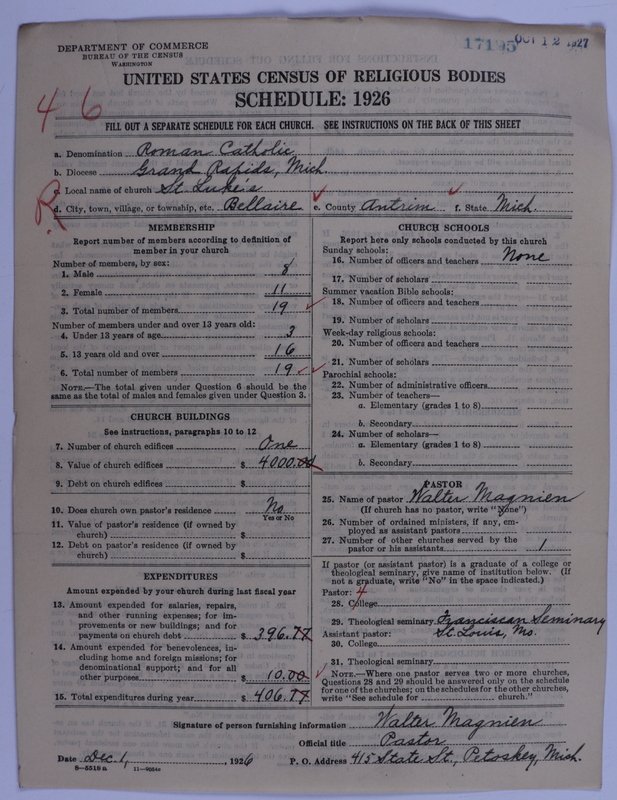 DEPARTMENT OF COMMERCE
BUREAU OF THE CENSUS
WASHINGTON
17195 OCT 12 1927
UNITED STATES CENSUS OF RELIGIOUS BODIES
SCHEDULE: 1926
4 6
FILL OUT A SEPARATE SCHEDULE FOR EACH CHURCH. SEE INSTRUCTIONS ON THE BACK OF THIS SHEET
a. Denomination Roman Catholic
b. Diocese Grand Rapids, Mich.
c. Local name of church St. Luke's
R
d. City, town, village, or township, etc. Bellaire e. County Antrim f. State Mich.
MEMBERSHIP
Report number of members according to definition of
member in your church
Number of members, by sex:
1. Male 8
2. Female 11
3. Total number of members 19
Number of members under and over 13 years old:
4. Under 13 years of age 3
5. 13 years old and over 16
6. Total number of members 19
NOTE.—The total given under Question 6 should be
same as the total of males and females given under Question 3.
CHURCH BUILDINGS
See instructions, paragraphs 10 to 12
7. Number of church edifices One
8. Value of church edifices $ 4000.00
9. Debt on church edifices $
10. Does church own pastor's residence No
Yes or No
11. Value of pastor's residence (if owned by
church) $
12. Debt on pastor's residence (if owned by
church) $
EXPENDITURES
Amount expended by your church during last fiscal year
13. Amount expended for salaries, repairs,
and other running expenses; for im-
provements or new buildings; and for
payments on church debt $ 396.77
14. Amount expended for benevolences, in-
cluding home and foreign missions; for
denominational support; and for all
other purposes $ 10.00
15. Total expenditures during year $ 406.77
CHURCH SCHOOLS
Report here only schools conducted by this church
Sunday schools:
16. Number of officers and teachers None
17. Number of scholars
Summer vacation Bible schools:
18. Number of officers and teachers
19. Number of scholars
Week-day religious schools:
20. Number of officers and teachers
21. Number of scholars
Parochial schools:
22. Number of administrative officers
23. Number of teachers—
a. Elementary (grades 1 to 8)
b. Secondary
24. Number of scholars—
a. Elementary (grades 1 to 8)
b. Secondary
PASTOR
25. Name of pastor Walter Magnien
(If church has no pastor, write "None")
26. Number of ordained ministers, if any, em-
ployed as assistant pastors
27. Number of other churches served by the
pastor or his assistants 1
If pastor (or assistant pastor) is a graduate of a college or
theological seminary, give name of institution below. (If
not a graduate, write "No" in the space indicated.)
Pastor: 4
28. College
29. Theological seminary Franciscan Seminary
Assistant pastor: St. Louis, Mo.
30. College
31. Theological seminary
NOTE.—Where one pastor serves two or more churches,
Questions 28 and 29 should be answered only on the schedule
for one of the churches; on the schedules for the other churches,
write "See schedule for church."
Signature of person furnishing information Walter Magnien
Official title Pastor
Date Dec. 1, 1926 P. O. Address 415 State St., Petoskey, Mich.
8—5518 a 11—9664a